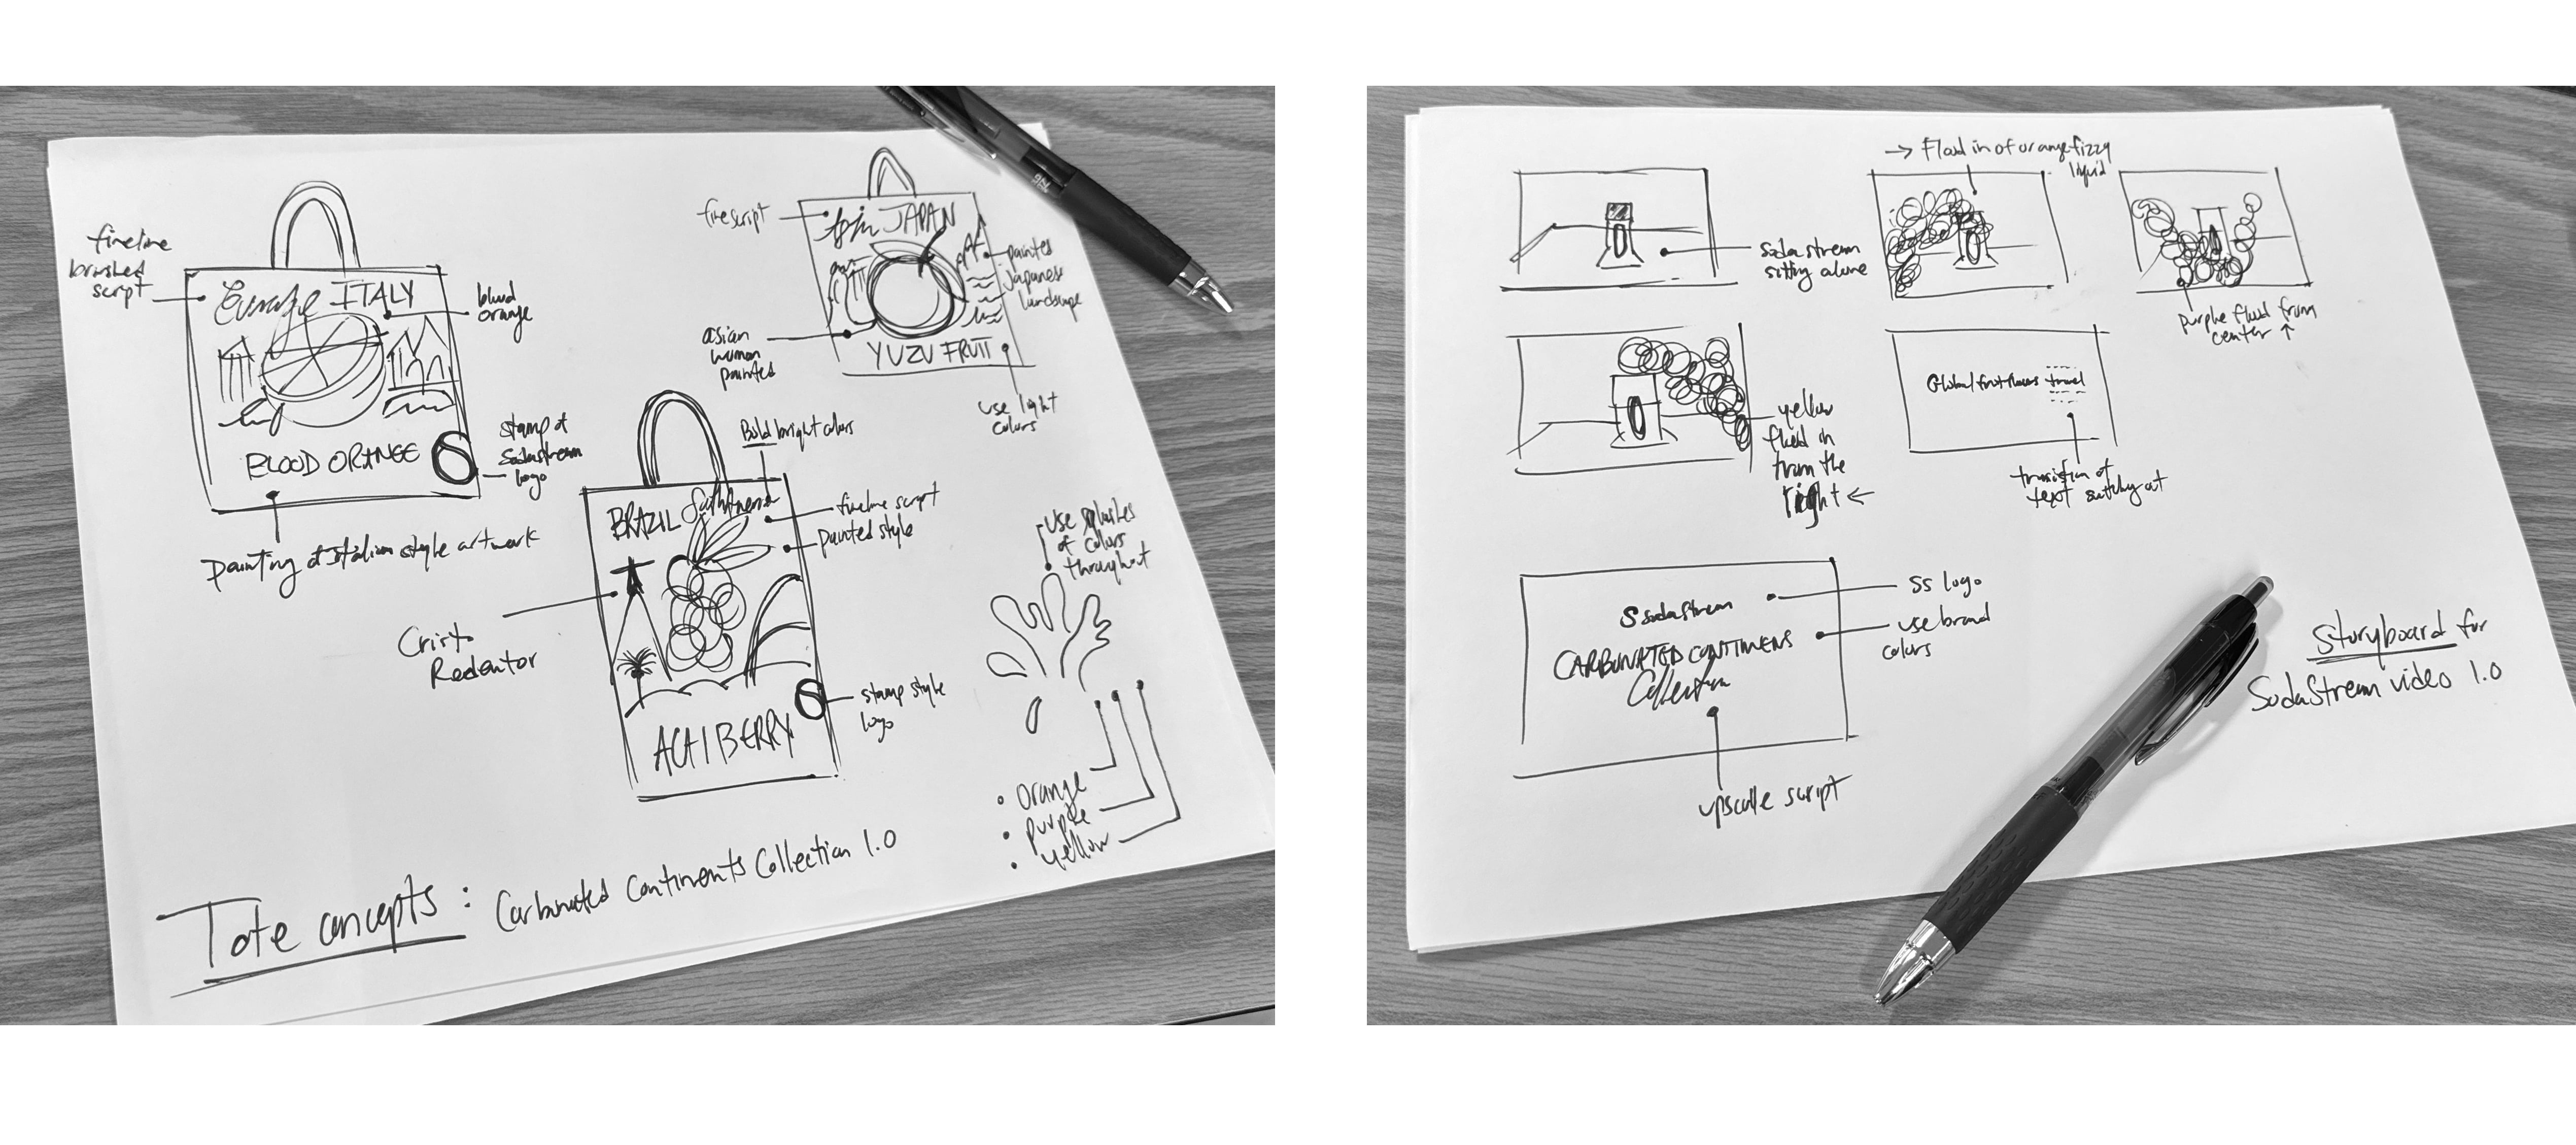 fineline
brushed
script
Europe ITALY
blood
orange
BLOOD ORANGE
stamp of
Sodastream
logo
painting of italian style artwork
fine script
JAPAN
painted
Japanese
landscape
asian
woman
painted
YUZU FRUIT
use light
colors
Bold bright colors
BRAZIL South America
fineline script
painted style
Cristo
Redentor
ACAI BERRY
stamp style
logo
use splashes
of colors
throughout
• Orange
• purple
• yellow
Tote concepts: Carbonated Continents Collection 1.0
sodastream
sitting alone
→ Flood in of orange fizzy
liquid
purple fluid from
center ↑
yellow
fluid in
from the
right ←
Global fruit flavors travel
transition of
text switching out
S sodastream
CARBONATED CONTINENS
Collection
ss logo
use brand
colors
upscale script
Storyboard for
SodaStream video 1.0